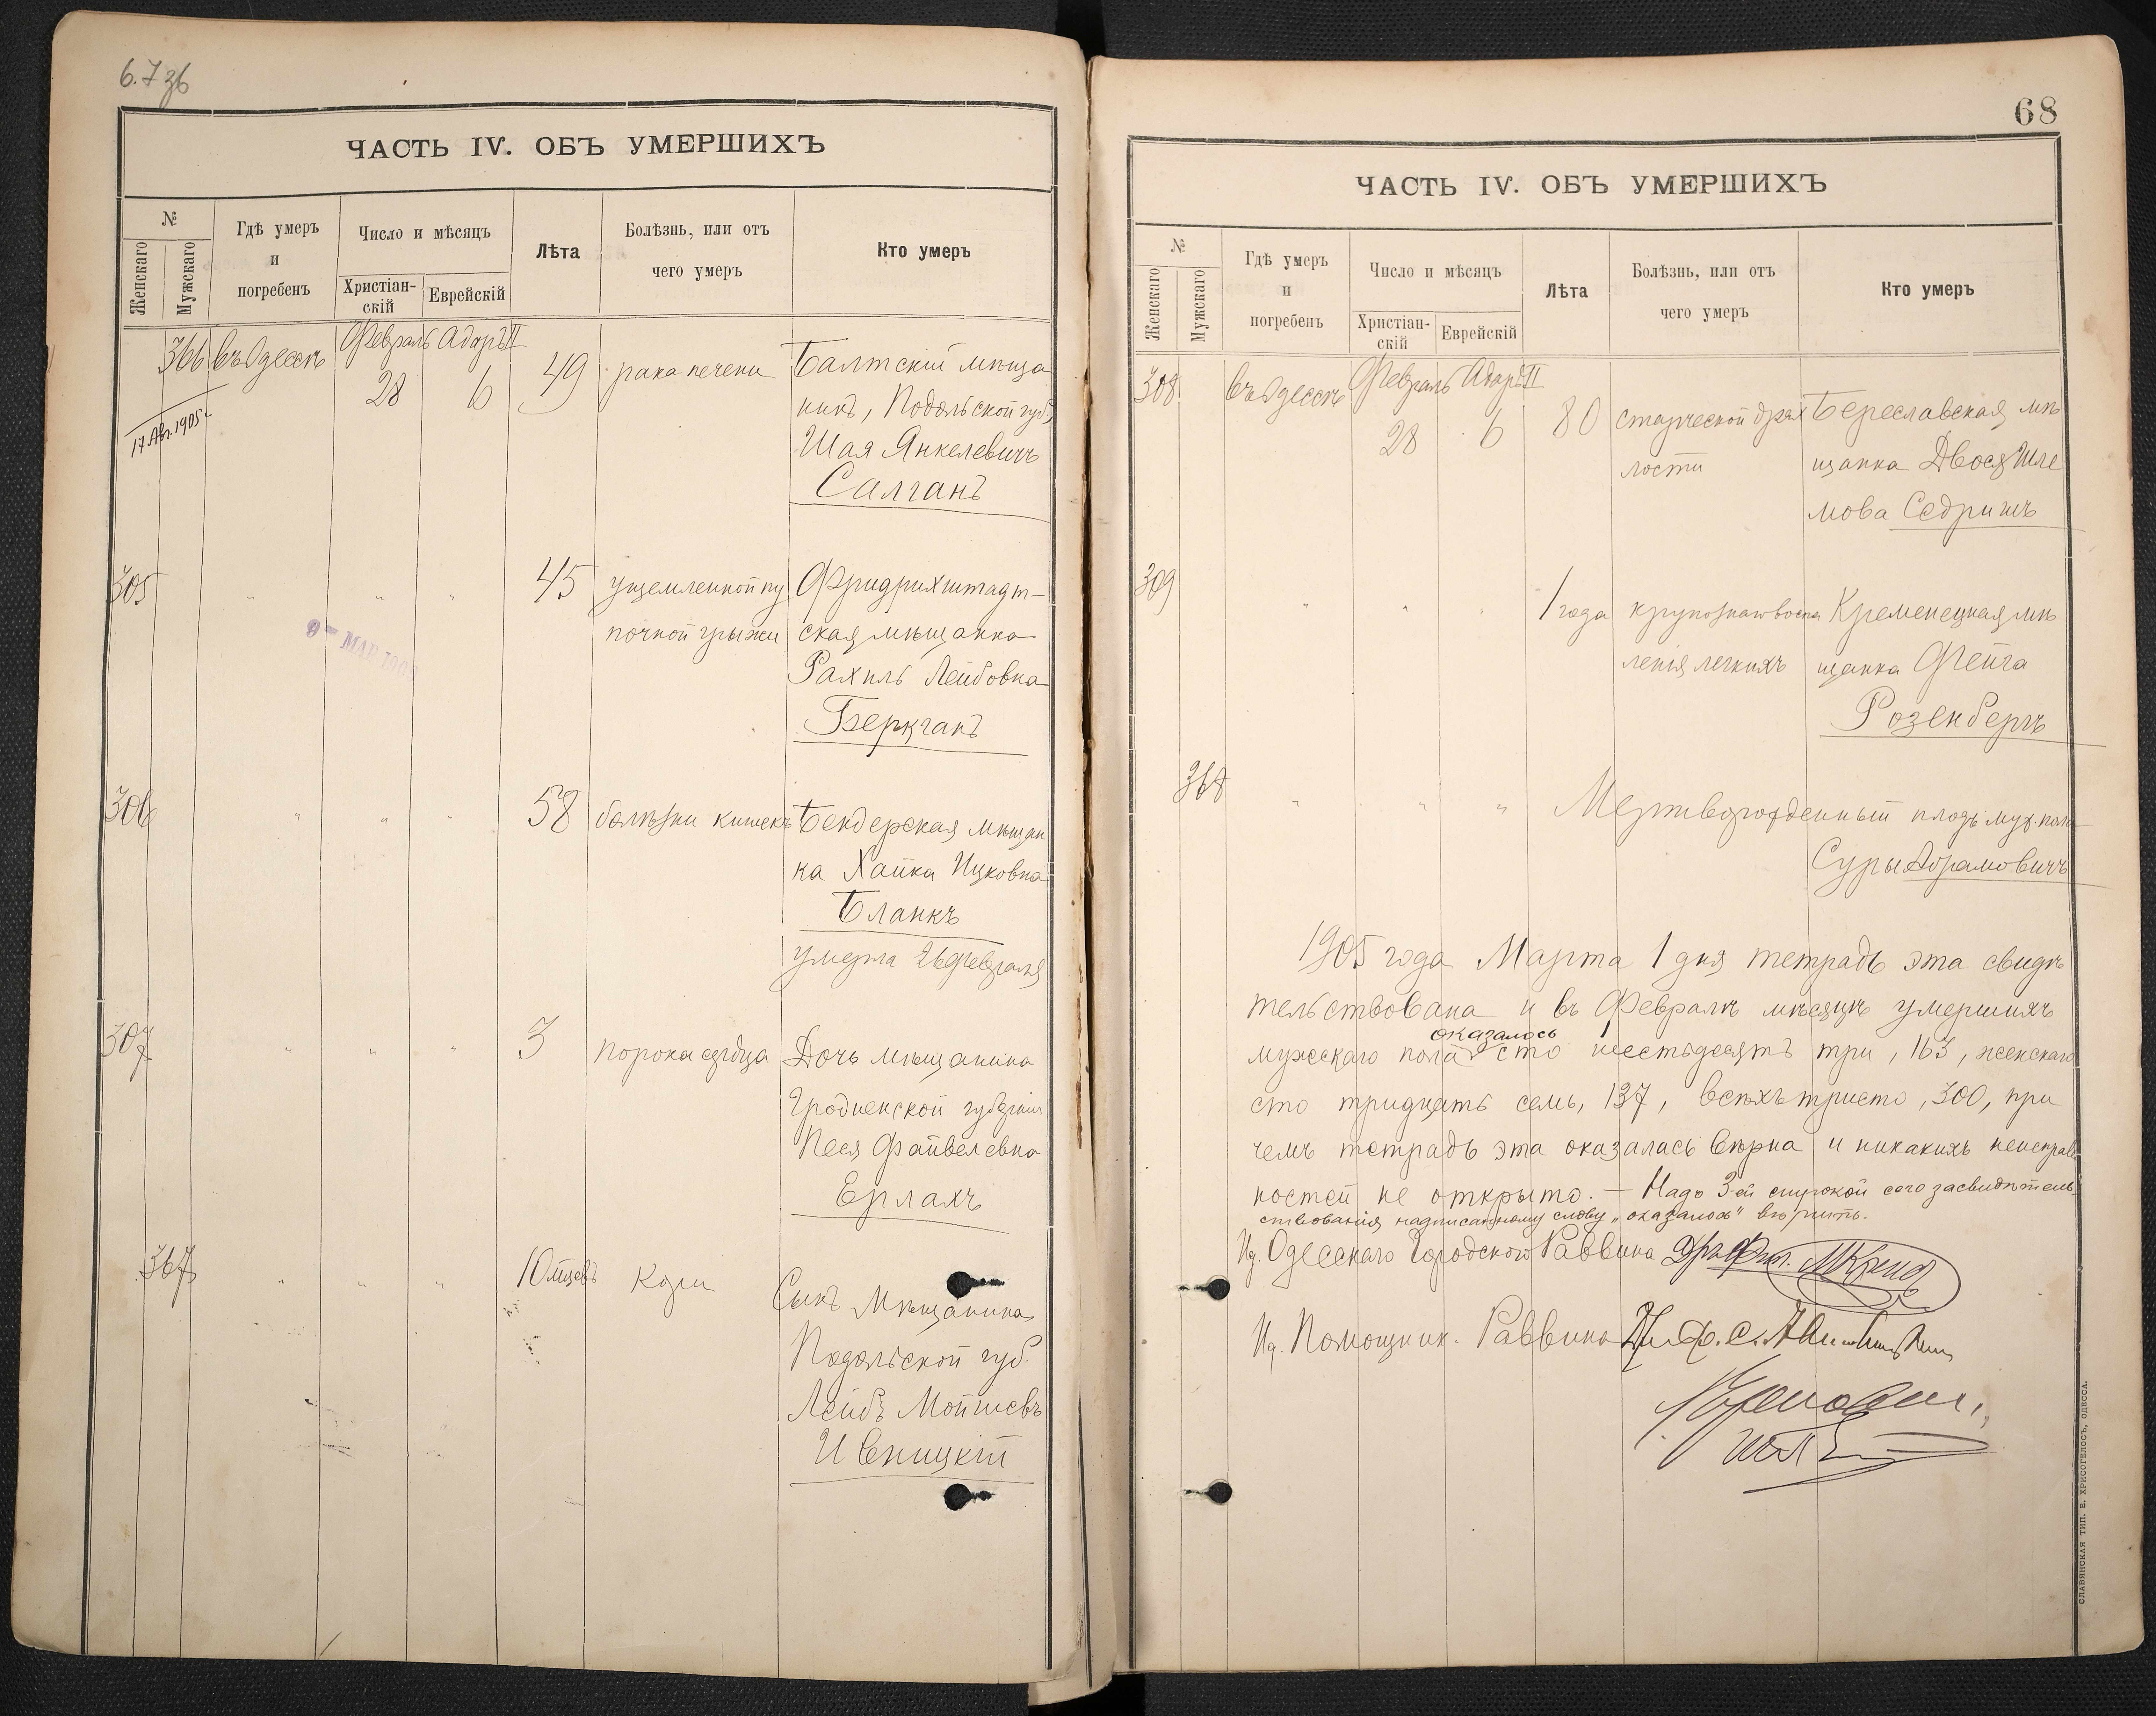 6.7 зб
ЧАСТЬ IV. ОБЪ УМЕРШИХЪ
№
Женскаго
Мужскаго
Гдѣ умеръ
и
погребенъ
Число и мѣсяцъ
Христіан-
скій
Еврейскій
Лѣта
Болѣзнь, или отъ
чего умеръ
Кто умеръ
366 въ Одессѣ Февраль Адаръ II
28 6 49 рака печени Балтскій мѣща
никъ, Подольской губ,
Шая Янкелевичъ
Салганъ
17 Авг. 1905 г.
305 " " " 45 ущемленной пу Фридрихштадт-
почной грыжи ская мѣщанка
Рахиль Лейбовна
МАР
306 " " " 58 болѣзни кишекъ Бендерская мѣщан
ка Хайка Ицковна
Бланкъ
умерла 26 февраля
307 " " " 3 порока сердца Дочь мѣщанина
Гродненской губерніи
Песя Файвелевна
Ерлахъ
367 " " " 10 мцевъ Кори Сынъ Мѣщанина
Подольской губ.
Лейбъ Мойшевъ
Ивницкій
68
ЧАСТЬ IV. ОБЪ УМЕРШИХЪ
№
Женскаго
Мужскаго
Гдѣ умеръ
и
погребенъ
Число и мѣсяцъ
Христіан-
скій
Еврейскій
Лѣта
Болѣзнь, или отъ
чего умеръ
Кто умеръ
308 въ Одессѣ Февраль Адаръ II
28 6 80 старческой дрях Береславская мѣ
лости щанка Двося Шле
мова Седришъ
309 " " " 1 года крупознаго воспа Кременецкая мѣ
ленія легкихъ щанка Фейга
Розенбергъ
368 " " " Мертворожденный плодъ муж. пола
Суры Абрамовичъ
1905 года Марта 1 дня тетрадь эта свидѣ
тельствована и въ Февралѣ мѣсяцѣ умершихъ
оказалось
мужескаго пола сто шестьдесятъ три, 163, женскаго
сто тридцать семь, 137, всѣхъ триста, 300, при
чемъ тетрадь эта оказалась вѣрна и никакихъ неисправ
ностей не открыто. — Надъ 3-ей строкой сего засвидѣтель-
ствованія надписанному слову „оказалось" вѣрить.
Ид. Одесскаго Городского Раввина
Ид. Помощник. Раввина
СЛАВЯНСКАЯ ТИП. Е. ХРИСОГЕЛОСЪ, ОДЕССА.